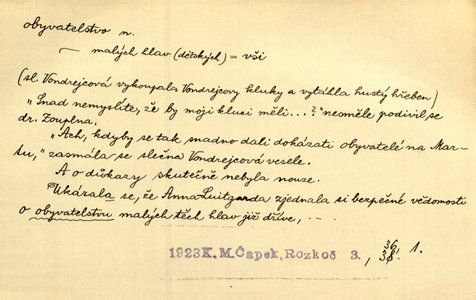 obyvatelstvo n.
— malých hlav (dětských) = vši
(sl. Vondrejcová vykoupala Vondrejcovy kluky a vytáhla hustý hřeben)
„Snad nemyslíte, že by moji kluci měli...?" nesměle podivil se
dr. Zouplna.
„Ach, kdyby se tak snadno dali dokázati obyvatelé na Mar-
tu," zasmála se slečna Vondrejcová vesele.
A o důkazy skutečně nebyla nouze.
Ukázala se, že Anna Luitgarda zjednala si bezpečné vědomosti
o obyvatelstvu malých těch hlav již dříve, . –
1923 K. M. Čapek, Rozkoč 3., 36, 1.
38